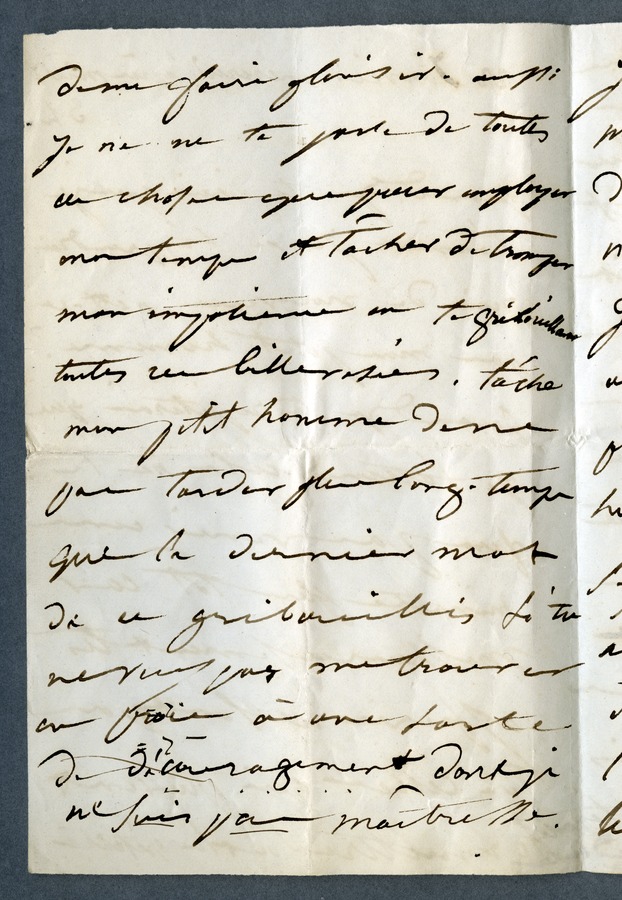 de me faire plaisir. aussi
Je ne ne te parle de toutes
ces choses que pour employer
mon temps et tâcher de tromper
mon impatience en te gribouillant
toutes ces billevesées. tâche
mon petit homme de ne
pas tarder plus long-temps
que le dernier mot
de ce gribouillis si tu
ne veux pas me trouver
en proie à une sorte
de découragement dont je
ne suis pas maîtresse.